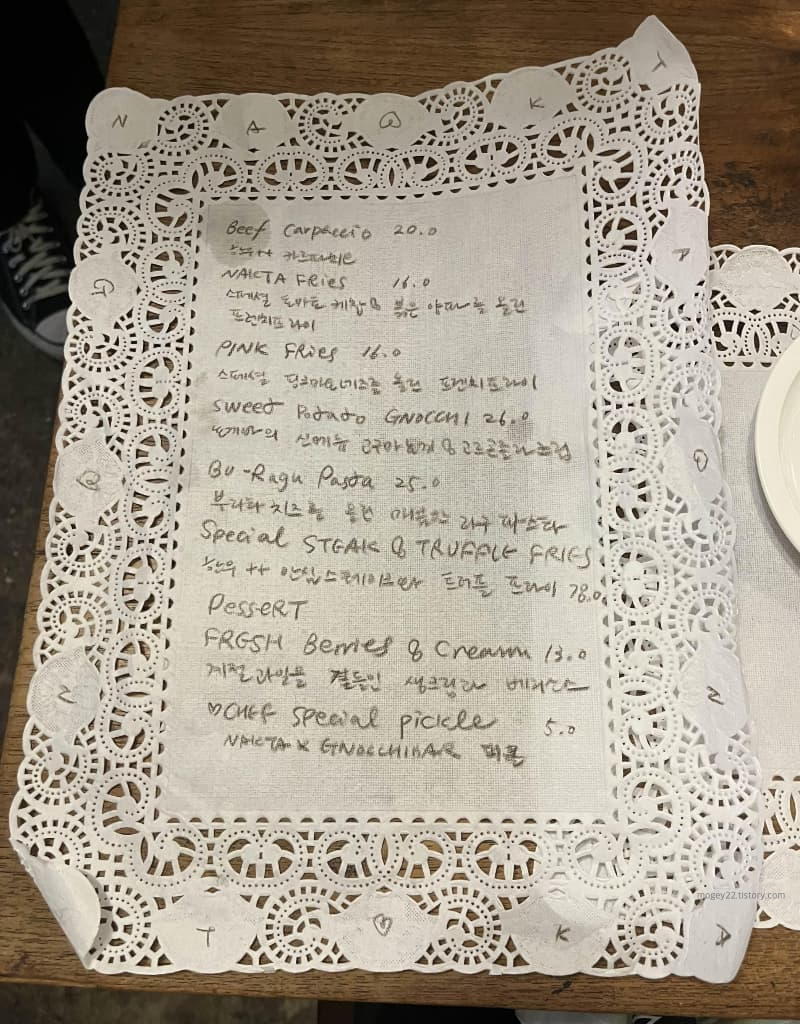 N A ♡ K T
Beef Carpaccio 20.0
한우++ 카르파쵸
NAKTA FRies 16.0
스페셜 토마토 케찹 & 볶은 양파를 올린
프렌치프라이
PINK FRies 16.0
스페셜 핑크마요네즈를 올린 프렌치프라이
Sweet Potato GNOCCHI 26.0
뇨끼바의 신메뉴 고구마뇨끼 & 고르곤졸라크림
Bu-Ragu Pasta 25.0
부라타 치즈를 올린 매콤한 라구 파스타
Special STEAK & TRUFFLE FRIES
한우 ++ 안심스테이크와 트러플 프라이 78.0
DesseRT
FRESH Berries & Cream 13.0
제철과일을 곁들인 생크림과 베리소스
♡CHEF special pickle 5.0
NAKTA X GNOCCHIBAR 피클
A
G
N
N
T ♡ K A
mogey22.tistory.com